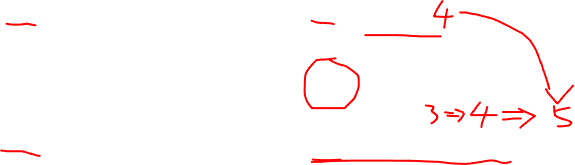 4
3⇒4⇒5